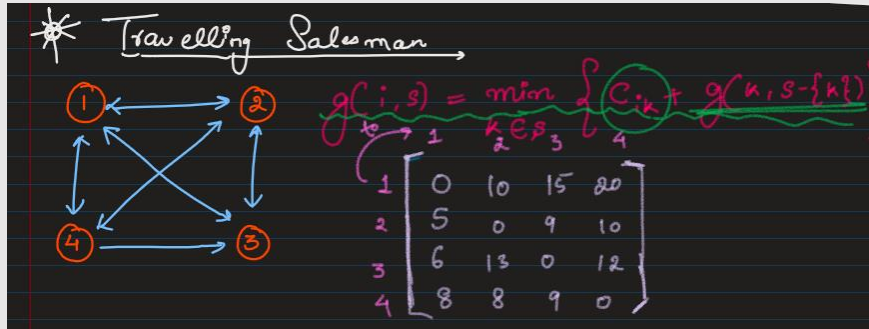 Travelling Salesman
1 2
g(i,s) = min { Cik + g(k, s-{k})
k ∈ s
to 1 2 3 4
1 0 10 15 20
2 5 0 9 10
3 6 13 0 12
4 8 8 9 0
4 3